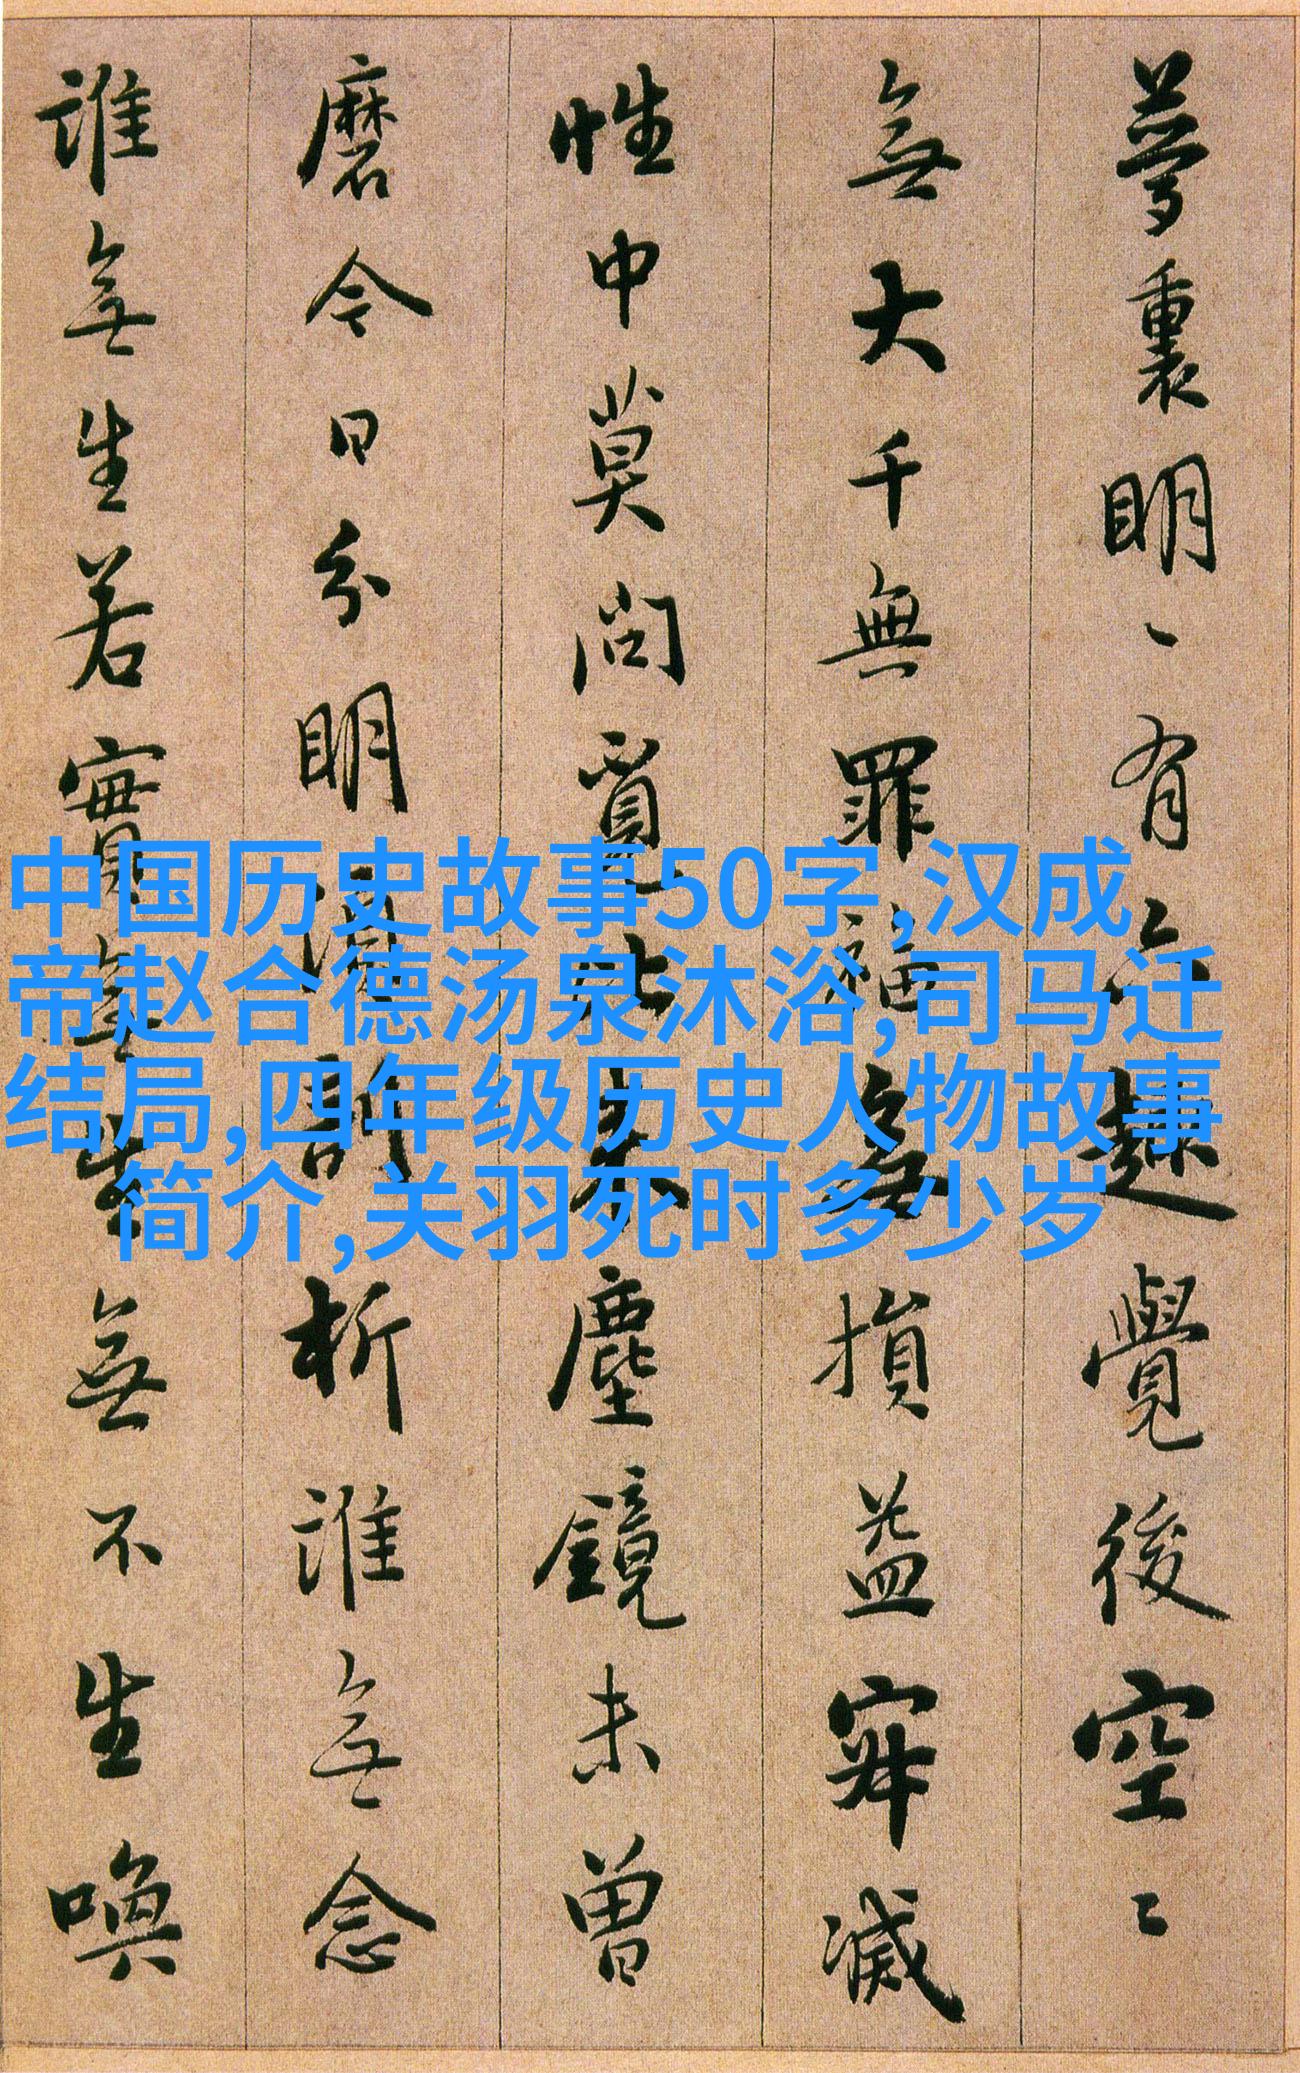 夢裏明〻有六趣覺後空〻
無大千無罪福無損益寂滅
性中莫問覓比来塵鏡未曾
磨今日分明湏剖析誰無念
誰無生若實無生無不生喚
中国历史故事50字,汉成
帝赵合德汤泉沐浴,司马迁
结局,四年级历史人物故事
简介,关羽死时多少岁